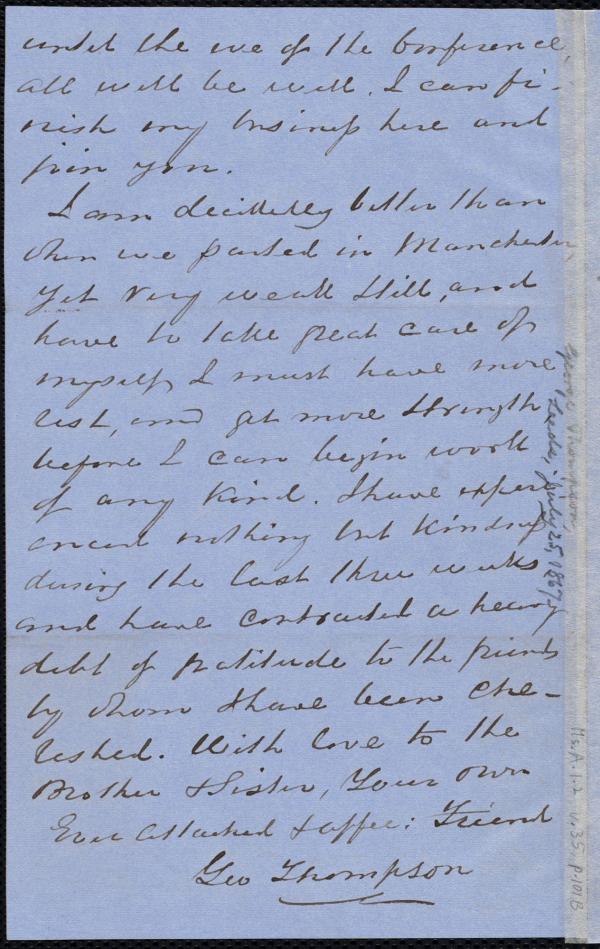 until the eve of the Conference,
all will be well. I can fi-
nish my business here and
join you.
I am decidedly better than
when we parted in Manchester,
yet very weak still, and
have to take great care of
myself. I must have more
rest, and get more strength
before I can begin work
of any kind. I have experi
enced nothing but kindness
during the last three weeks
and have contracted a heavy
debt of gratitude to the friends
by whom I have been che-
rished. With love to the
Brother & Sister, Your own
Ever attached & affec: Friend
Geo Thompson
George Thompson,
Leeds, July 25, 1867
Ms.A.1.2 v.35, p.101B